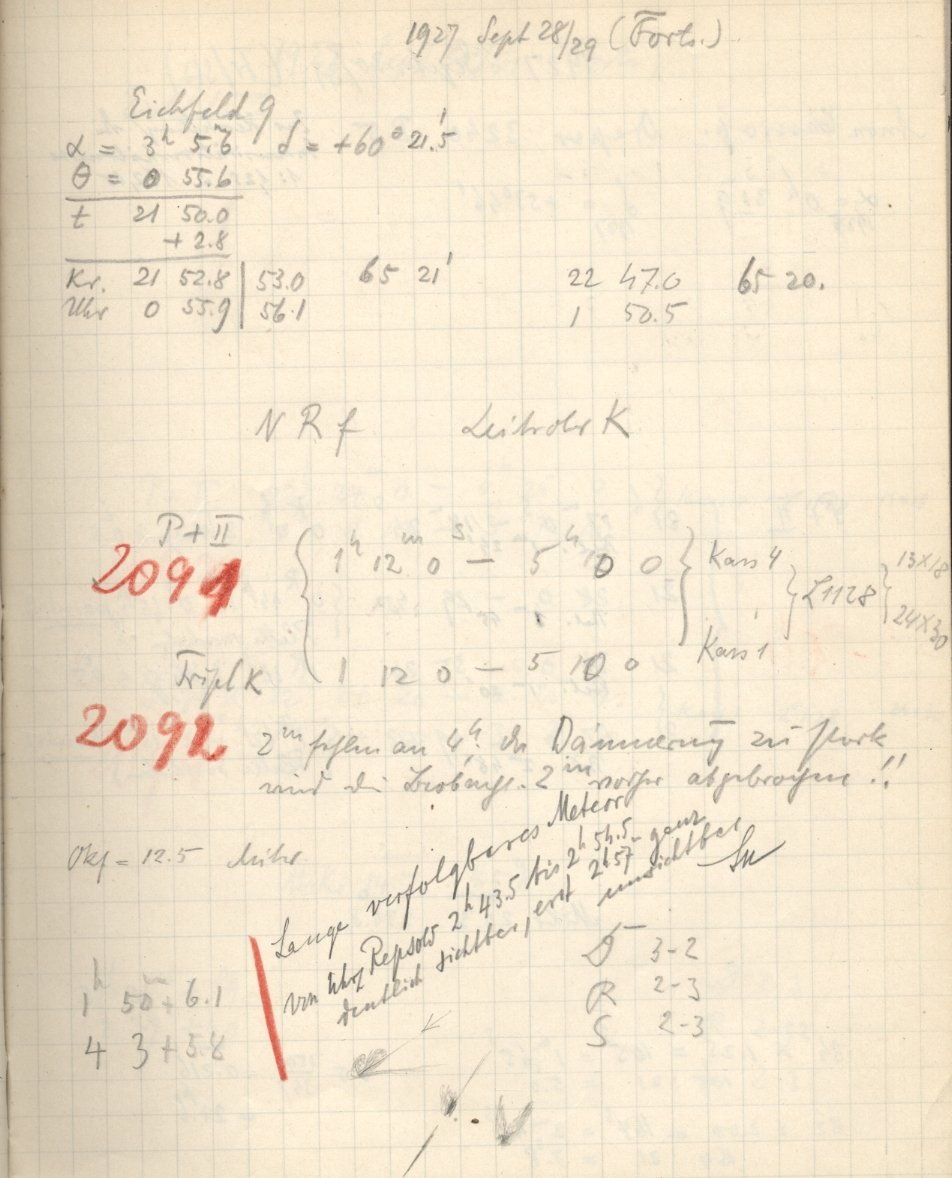 1927 Sept 28/29 (Forts.)
Eichfeld 9
α = 3h 5.m6 δ = +60° 21.'5
θ = 0 55.6
t 21 50.0
+ 2.8
Kr. 21 52.8 | 53.0 65 21' 22 47.0 65 20.
Uhr 0 55.9 | 56.1 1 50.5
N R f Leitrohr K
P + II
2091 1h 12m 0s — 5h 10 0 Kass 4
L1128 13×18
24×30
Kass 1
Tripl K 1 12 0 — 5 10 0
2092
2m fehlen an 4h. da Dämmerung zu stark
wird die Beobacht. 2m vorher abgebrochen !!
Okf = 12.5
Lange verfolgbares Meteor
von Uhr Repsold 2h 43.5 bis 2h 54.5 ganz
deutlich sichtbar, erst 2h57 unsichtbar
D 3-2
R 2-3
S 2-3
1h 50m + 6.1
4 3 + 5.8